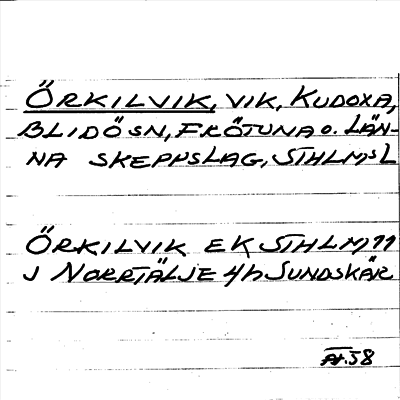 ÖRKILVIK, VIK, KUDOXA,
BLIDÖ SN, FRÖTUNA O. LÄN-
NA SKEPPSLAG, STHLMS L
ÖRKILVIK EK STHLM 77
J NORRTÄLJE 4h SUNDSKÄR
58